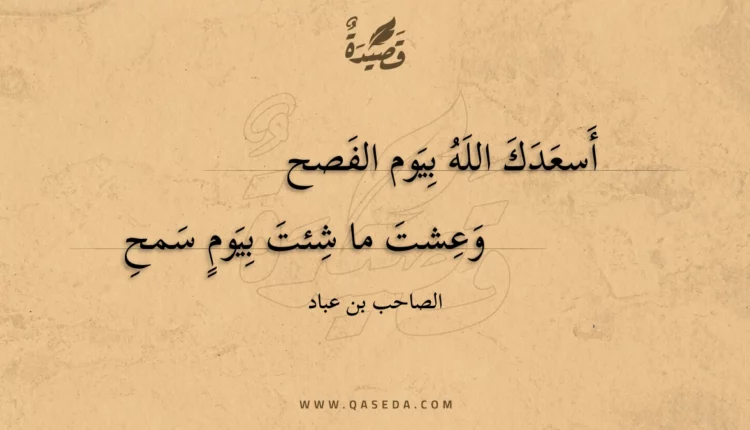 قَصِيدَةٌ
أَسعَدَكَ اللَهُ بِيَوم الفَصح
وَعِشتَ ما شِئتَ بِيَومٍ سَمحِ
الصاحب بن عباد
WWW.QASEDA.COM